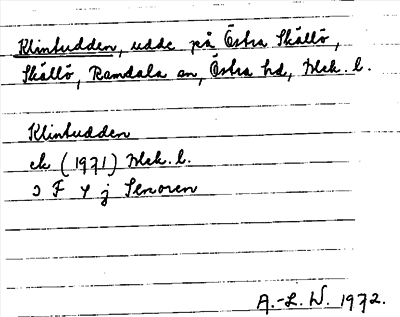 Klintudden, udde på Östra Skällö,
Skällö, Ramdala sn, Östra hd, Blek. l.
Klintudden
ek (1971) Blek. l.
5 F 4 j Senoren
A.-L. W. 1972.